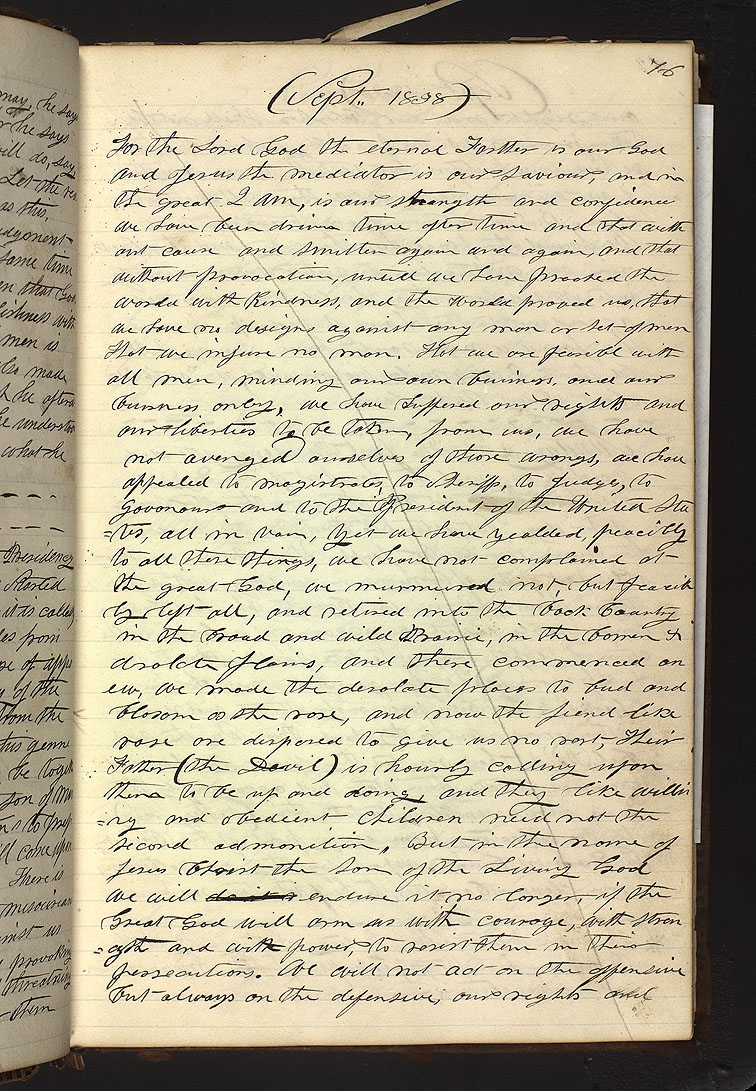 76
(Sept. 1838)
For the Lord God the eternal Father is our God
and Jesus the mediator is our Saviour, and in
the great I am, is our strength and confidence
we have been driven time after time and that with
out cause and smitten again and again, and that
without provocation, untill we have prooved the
world with kindness, and the world proved us, that
we have no designs against any man or set of men
That we injure no man. That we are peasible with
all men, minding our own buiness, and our
buiness only, we have suffered our rights and
our liberties to be taken, from us, we have
not avenged ourselves of those wrongs, we have
appealed to magistrates, to Sheriffs, to Judges, to
Govonours and to the President of the United Sta
=tes, all in vain, yet we have yealded, peacibly
to all these things, we have not complained at
the great God, we murmured not, but peacib
ly left all, and retired into the back Country
in the broad and wild Prairie, in the barren &
desolate plains, and there commenced an
ew, we made the desolate places to bud and
blosom as the rose, and now the fiend like
rase are disposed to give us no rest, Their
Father (the Devil) is hourly calling upon
them to be up and doing, and they like willi
=ng and obedient Children need not the
second admonition, But in the name of
Jesus Christ the Son of the Living God
We will endure it no longer, if the
Great God will arm us with courage, with stren
=gth and with power, to resist them in their
persecutions. We will not act on the offensive
but always on the defensive, our rights and
may, he says
he says
will do, says
Let the
as this.
Judgement
same time
that God
with
men is
also made
he
he
what he
Presidency
Started
it is called
from
of
of the
from the
be
son of man
come upon
There is
us
provoking
threatening
them